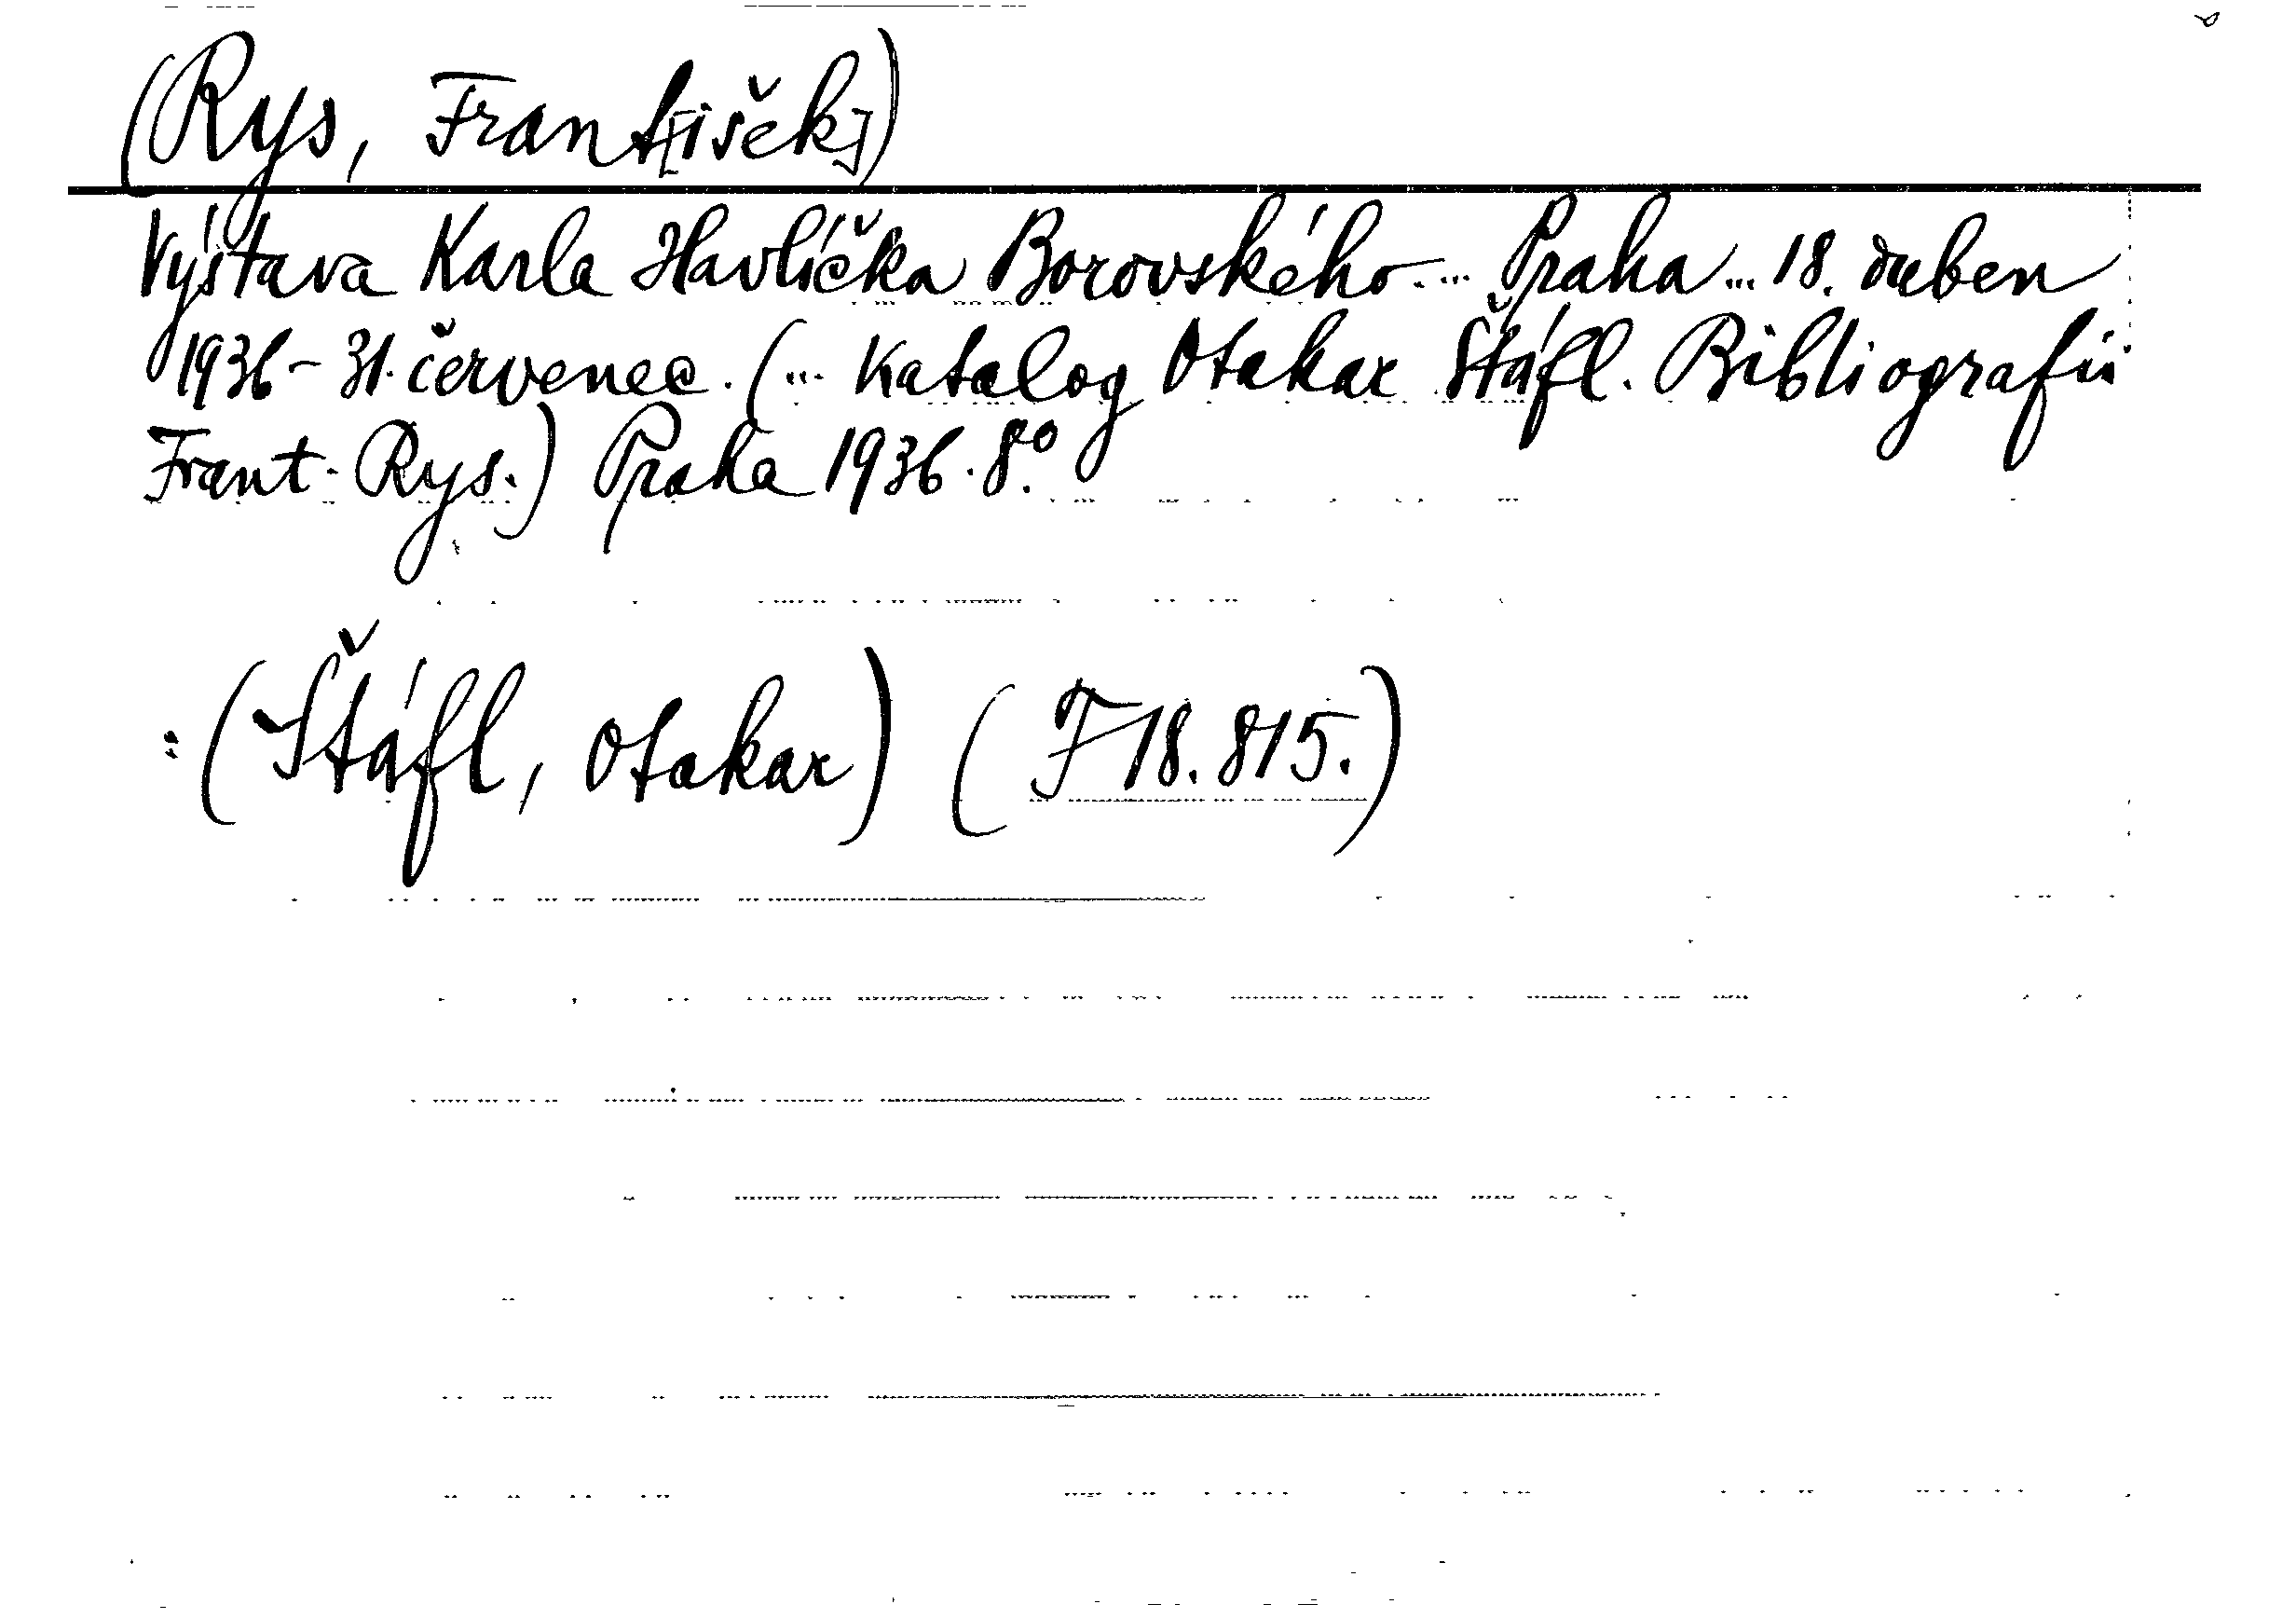 (Rys, Frant[išek])
Výstava Karla Havlíčka Borovského... Praha... 18. duben
1936 - 31. červenec. (... Katalog Otakar Štáfl. Bibliografii
Frant. Rys.) Praha 1936. 8°.
: (Štáfl, Otakar) (F 18.815.)